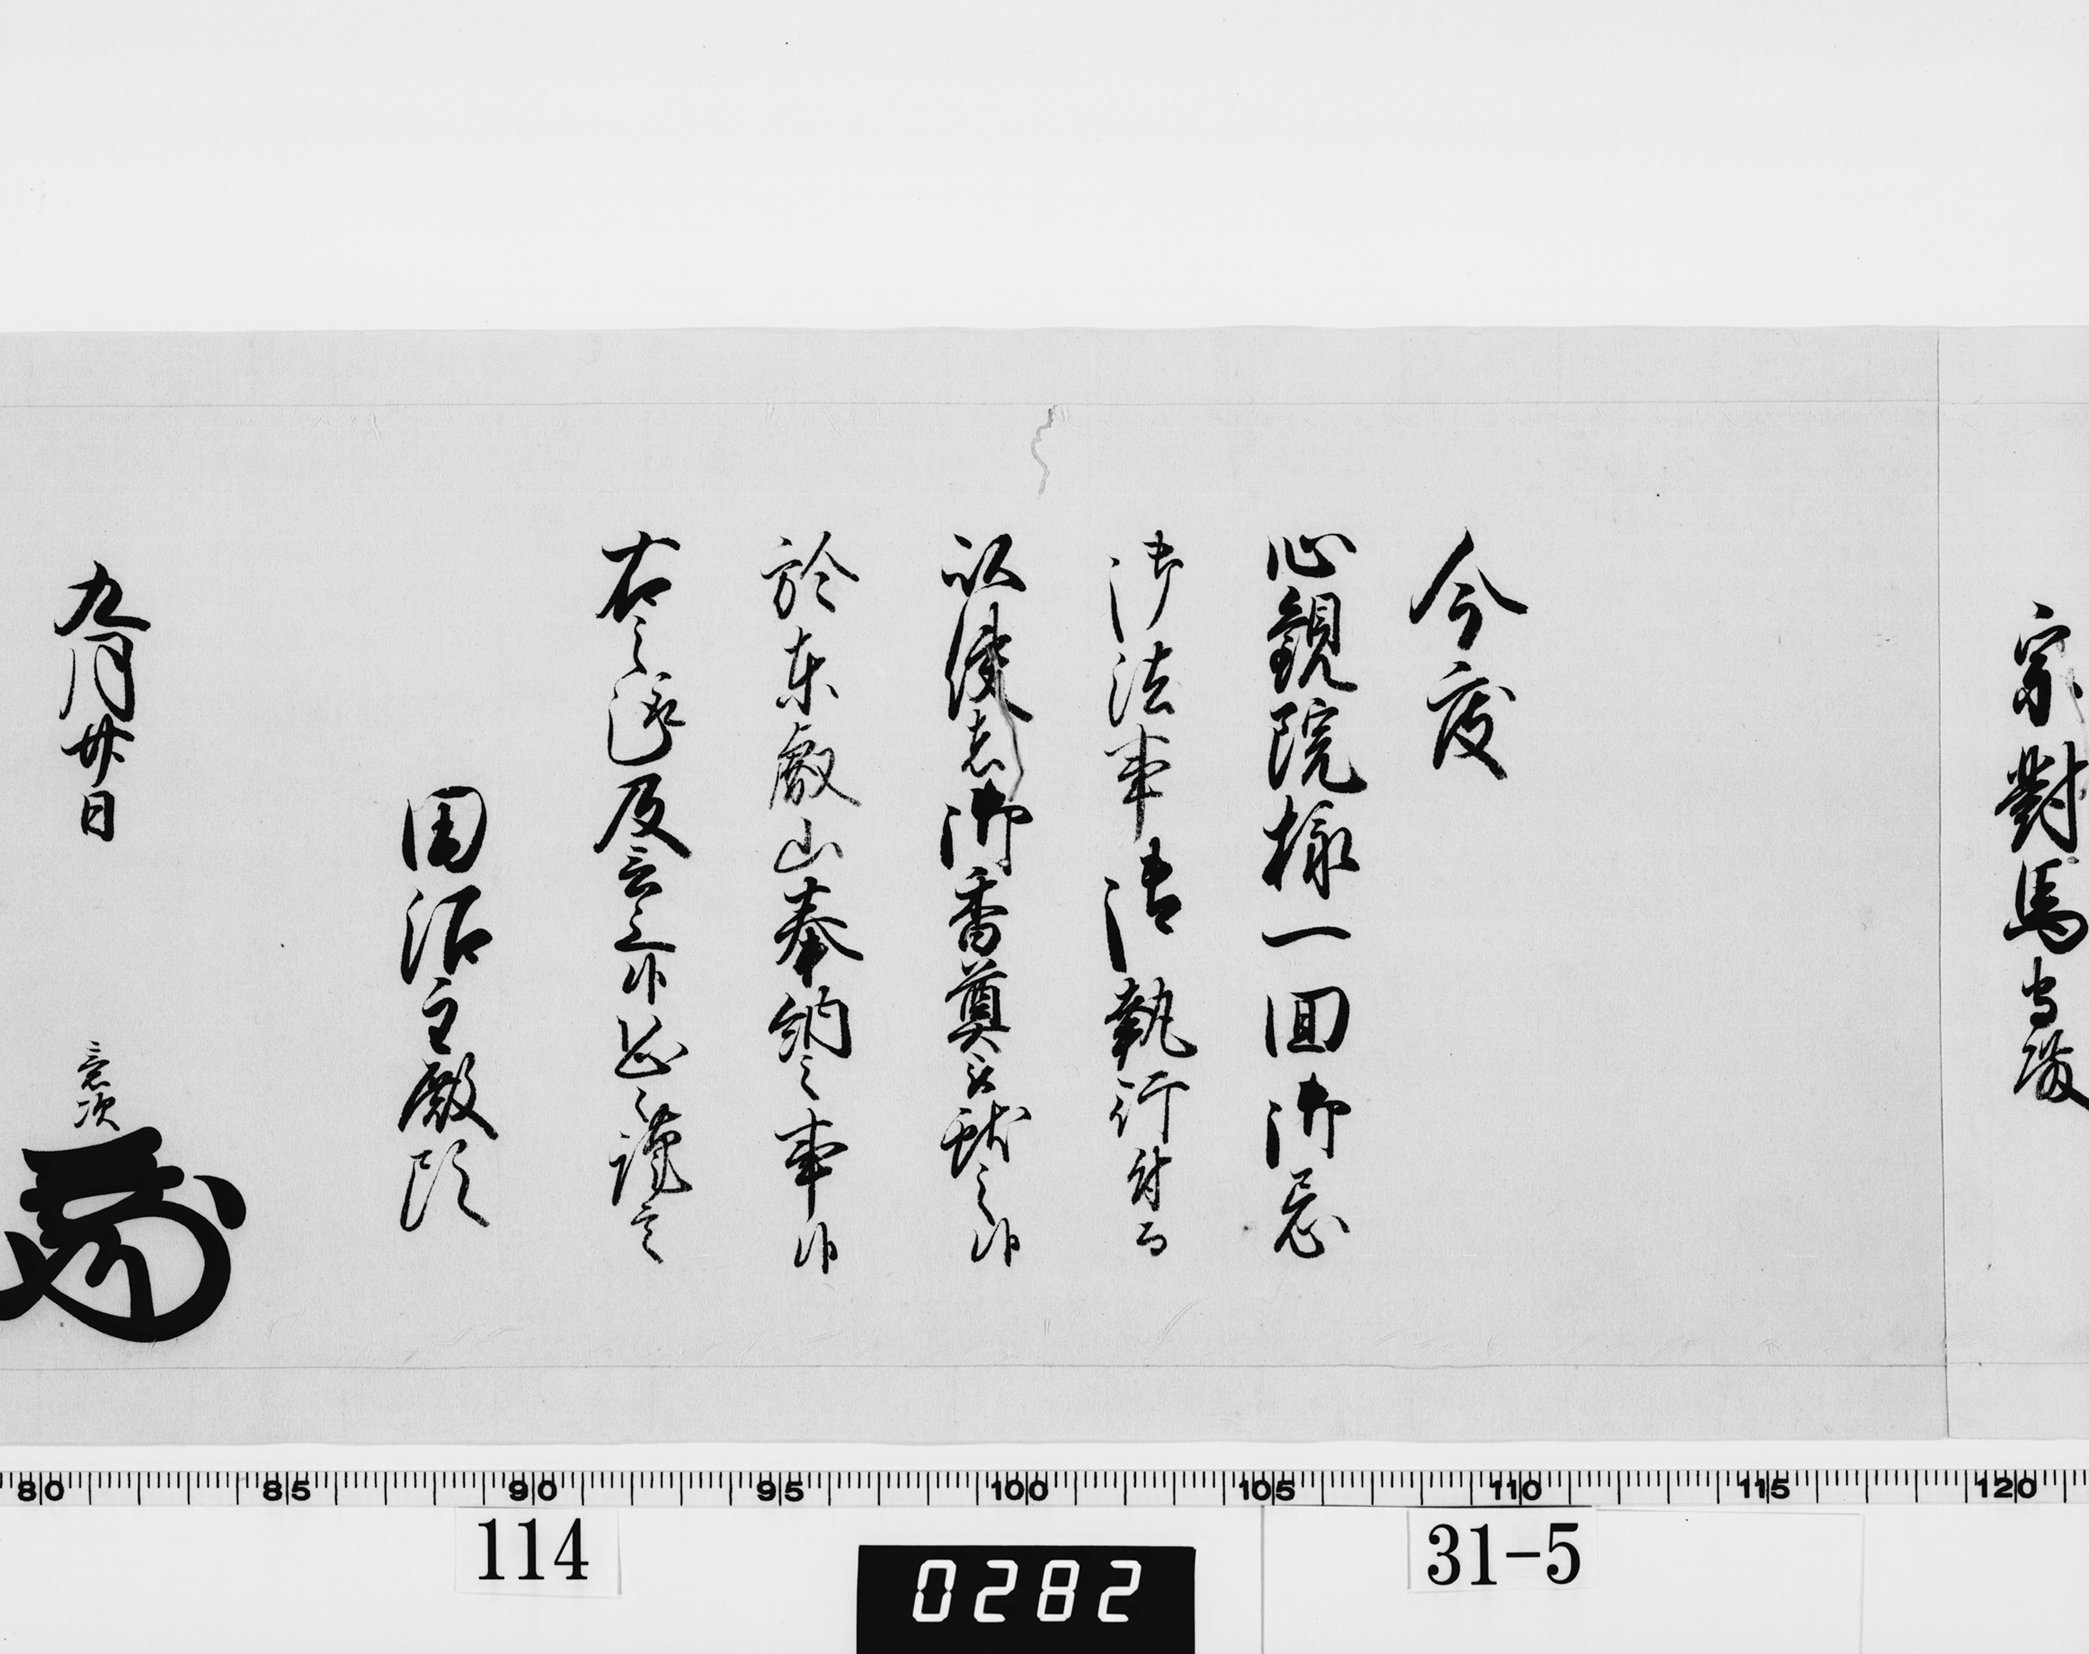 宗對馬守殿
今度
心観院様一回御忌
御法事御執行付而
以使者御香奠被献之候
於東叡山奉納之事候
右之趣及言上候恐々謹言
田沼主殿頭
九月廿日
意次
80 85 90 95 100 105 110 115 120
114
0282
31-5